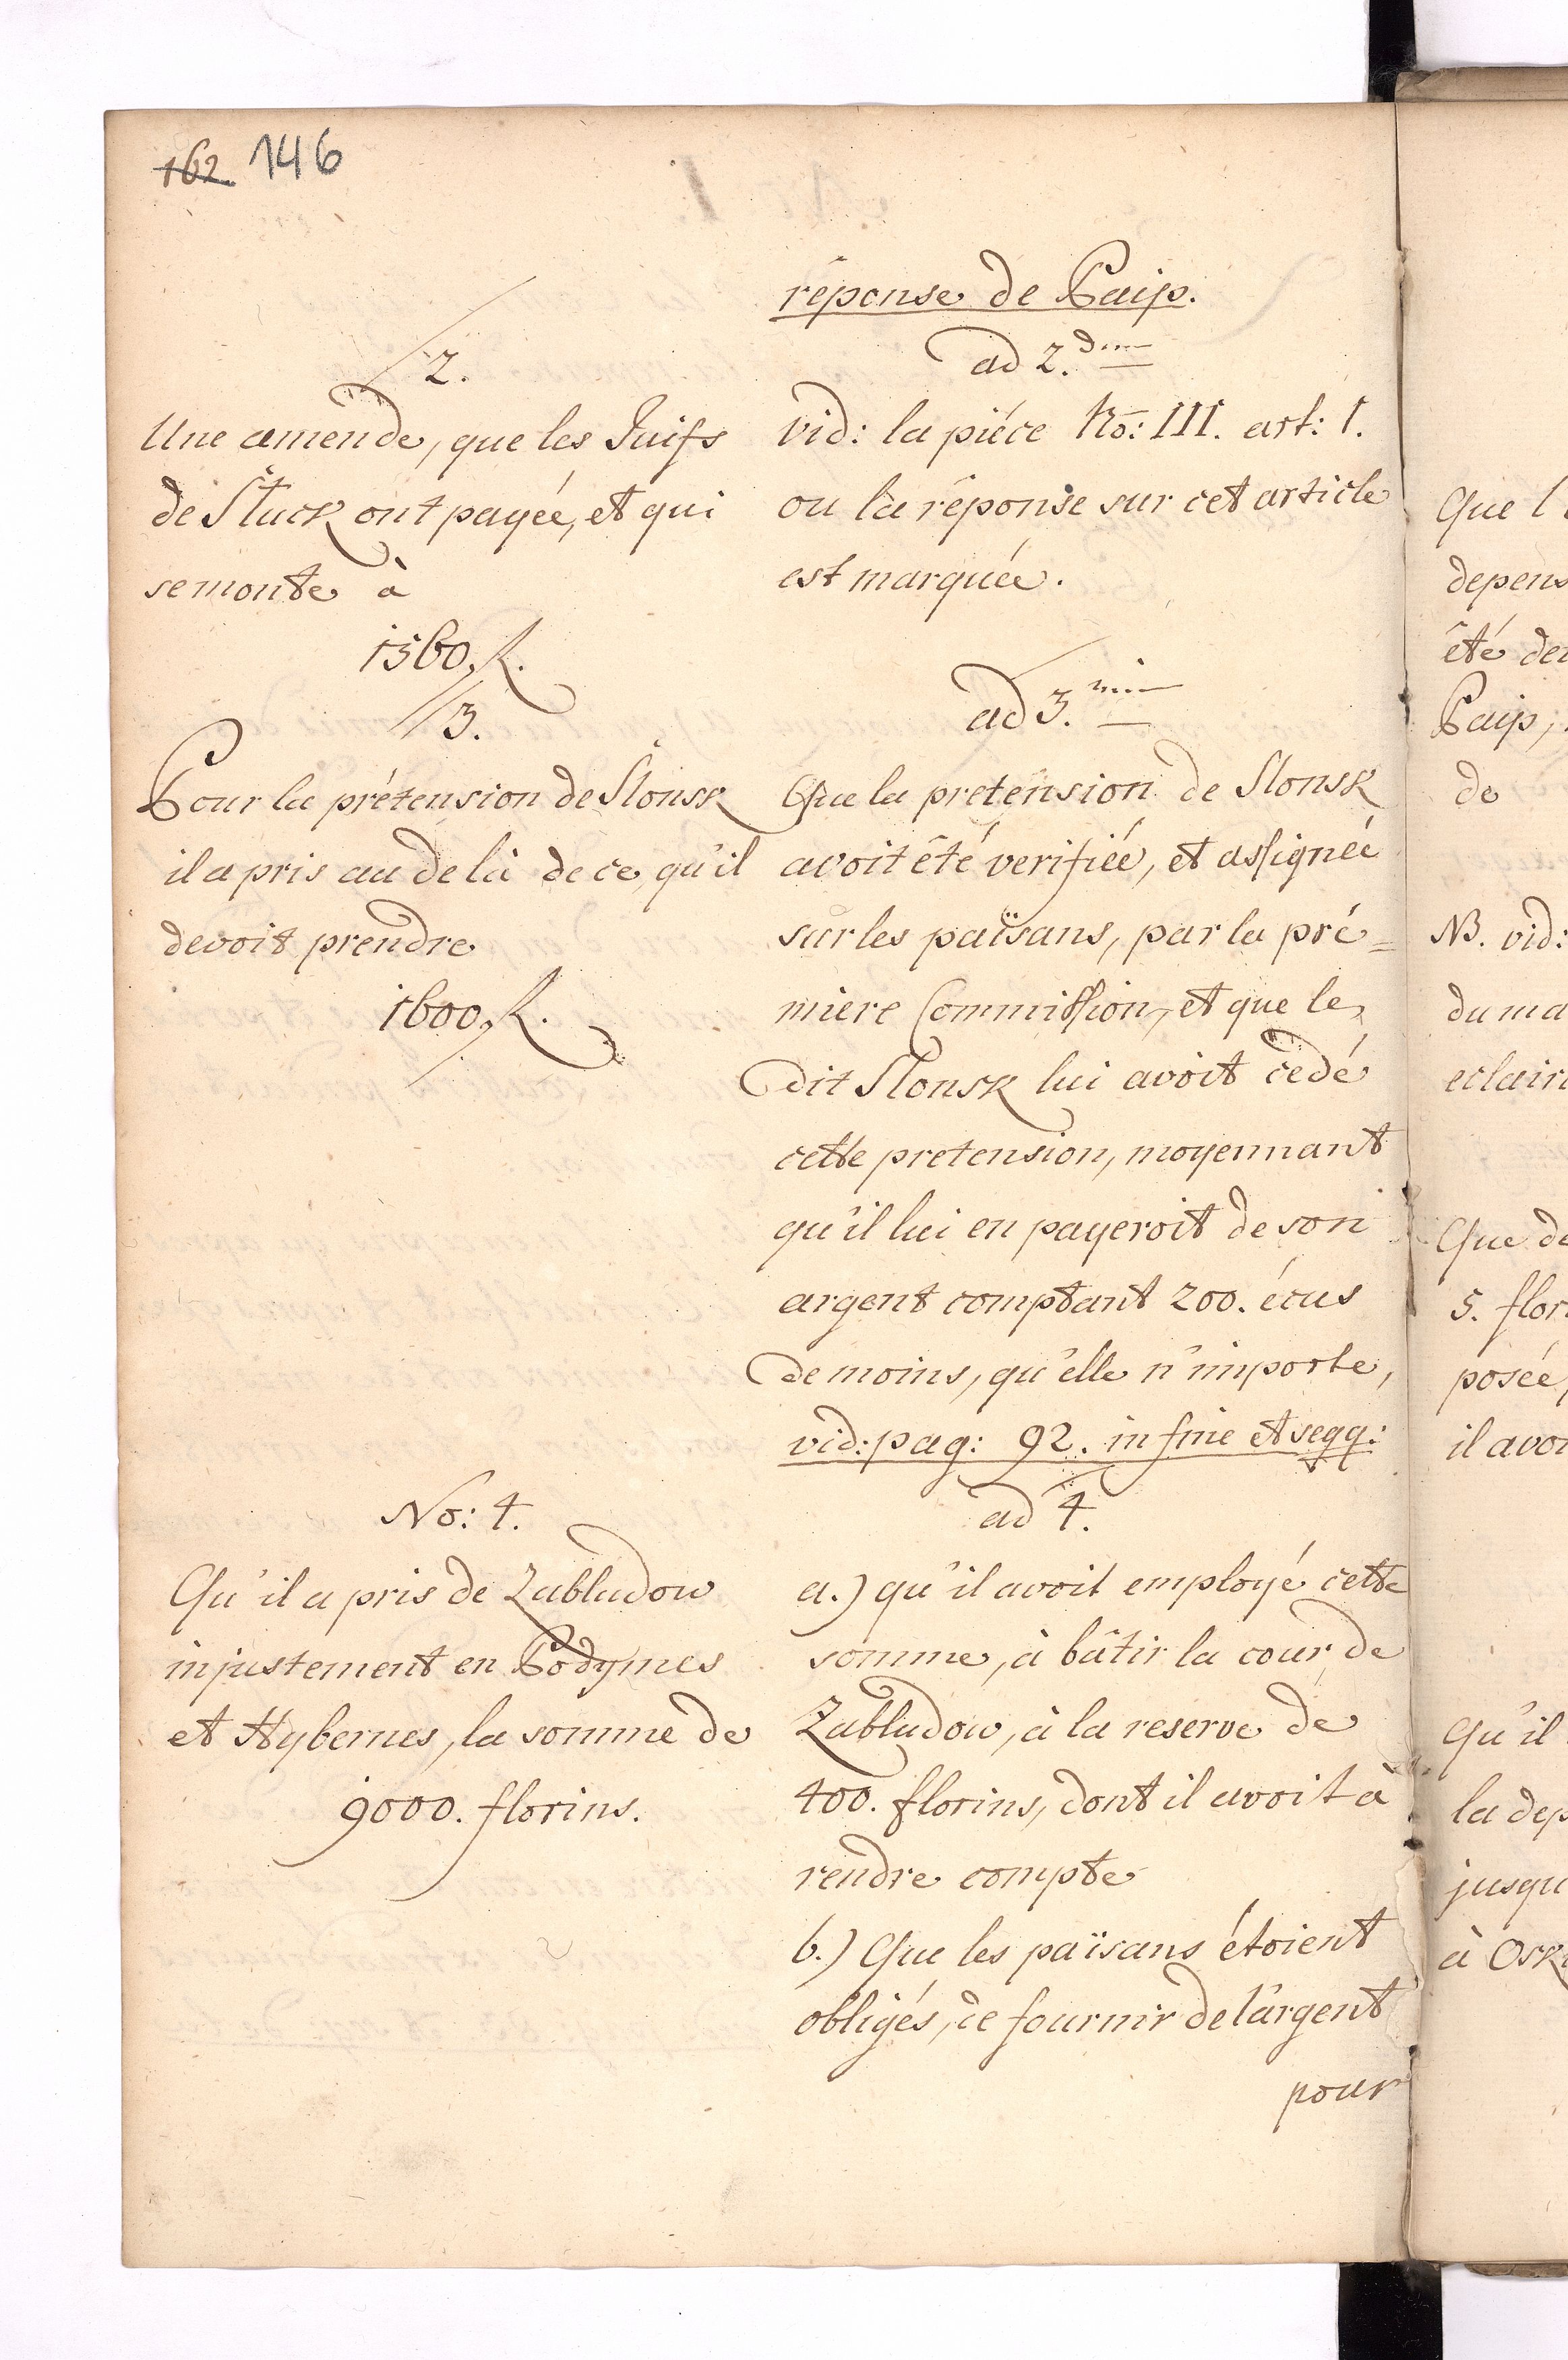 162 146
réponse de Paip.
2.
Une amende, que les Juifs
de Sluck ont payée, et qui
se monte à
1560. fl.
ad 2.dum
vid: la piéce No: III. art: I.
ou la réponse sur cet article
est marquée.
3.
Pour la prétension de Slonsk
il a pris au de là de ce, qu'il
devoit prendre
1600. fl.
ad 3.
Que la pretension de Slonsk
avoit êté verifiée, et assignée
sur les païsans, par la pré=
miere Commission, et que le
dit Slonsk lui avoit cedé
cette pretension, moyennant
qu'il lui en payeroit de son
argent comptant 200. écus
de moins, qu'elle n'importe,
vid: pag: 92. in fine et seqq:
No: 4.
Qu'il a pris de Zabludow
injustement en Podymes
et Hybernes, la somme de
9000. florins.
ad 4.
a.) qu'il avoit employé cette
somme, à bâtir la cour de
Zabludow, à la reserve de
400. florins, dont il avoit à
rendre compte
b.) Que les païsans étoient
obligés, de fournir de l'argent
pour
Que
depens
êté
Paip,
de
NB. vid:
du
Que
5.
posée,
il
Qu'il
la
à